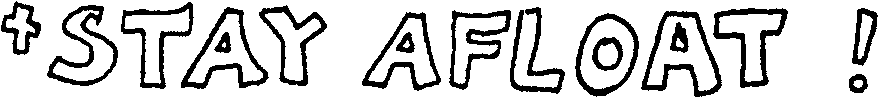 +STAY AFLOAT !